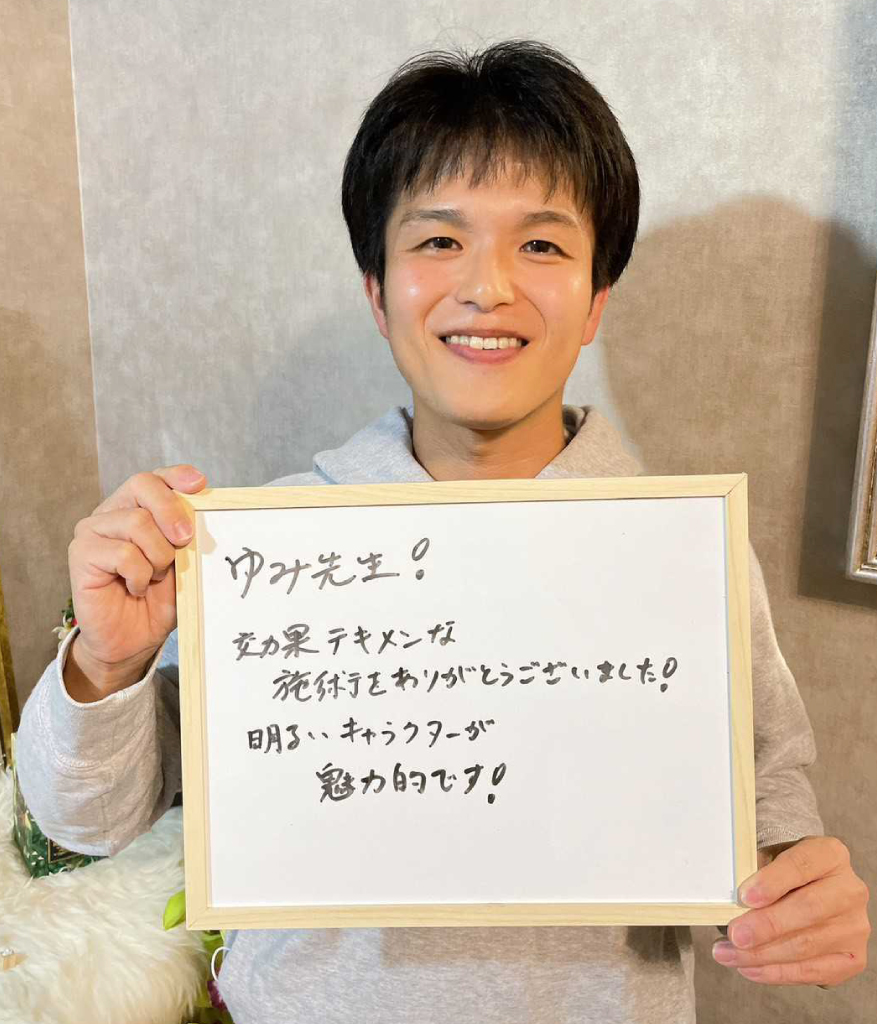 ゆみ先生!
効果テキメンな
施術をありがとうございました!
明るいキャラクターが
魅力的です!